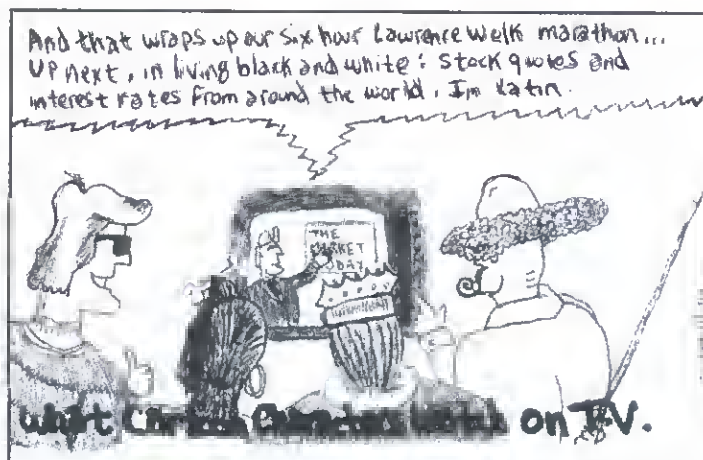 And that wraps up our six hour Lawrence Welk marathon...
UP next, in living black and white: Stock quotes and
interest rates from around the world, In Latin.
THE
MARKET
TODAY
what Cartoon Characters Watch on T.V.